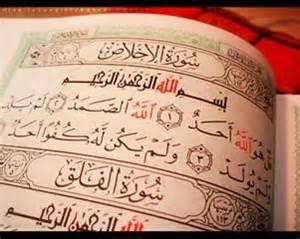 سُورَةُ الإِخْلَاصِ
بِسْمِ اللَّهِ الرَّحْمَٰنِ الرَّحِيمِ
قُلْ هُوَ اللَّهُ أَحَدٌ ١ اللَّهُ الصَّمَدُ ٢ لَمْ يَلِدْ
وَلَمْ يُولَدْ ٣ وَلَمْ يَكُن لَّهُ كُفُوًا أَحَدٌ
سُورَةُ الفَلَقِ
بِسْمِ اللَّهِ الرَّحْمَٰنِ الرَّحِيمِ